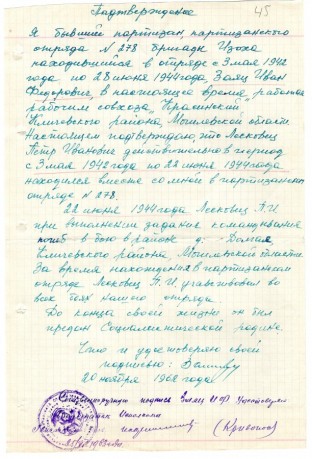 45
Подтверждение
Я бывший партизан партизанского
отряда № 278 бригады Изоха
находившийся в отряде с 3 мая 1942
года по 28 июня 1944 года, Заяц Иван
Федорович, в настоящее время работаю
рабочим совхоза
Кличевского района, Могилевской области
Настоящим подтверждаю, что Лесковец
Петр Иванович действительно в период
с 3 мая 1942 года по 22 июня 1944 года
находился вместе со мной в партизанском
отряде № 278.
22 июня 1944 года Лесковец П.И.
при выполнении задания командования
погиб в бою в районе д.
Кличевского района, Могилевской области.
За время нахождения в партизанском
отряде Лесковец П.И. участвовал во
всех боях нашего отряда.
До конца своей жизни он был
предан Социалистической родине
Что и удостоверяю своей
подписью:
20 ноября 196 года
подпись Заяц И.Ф.